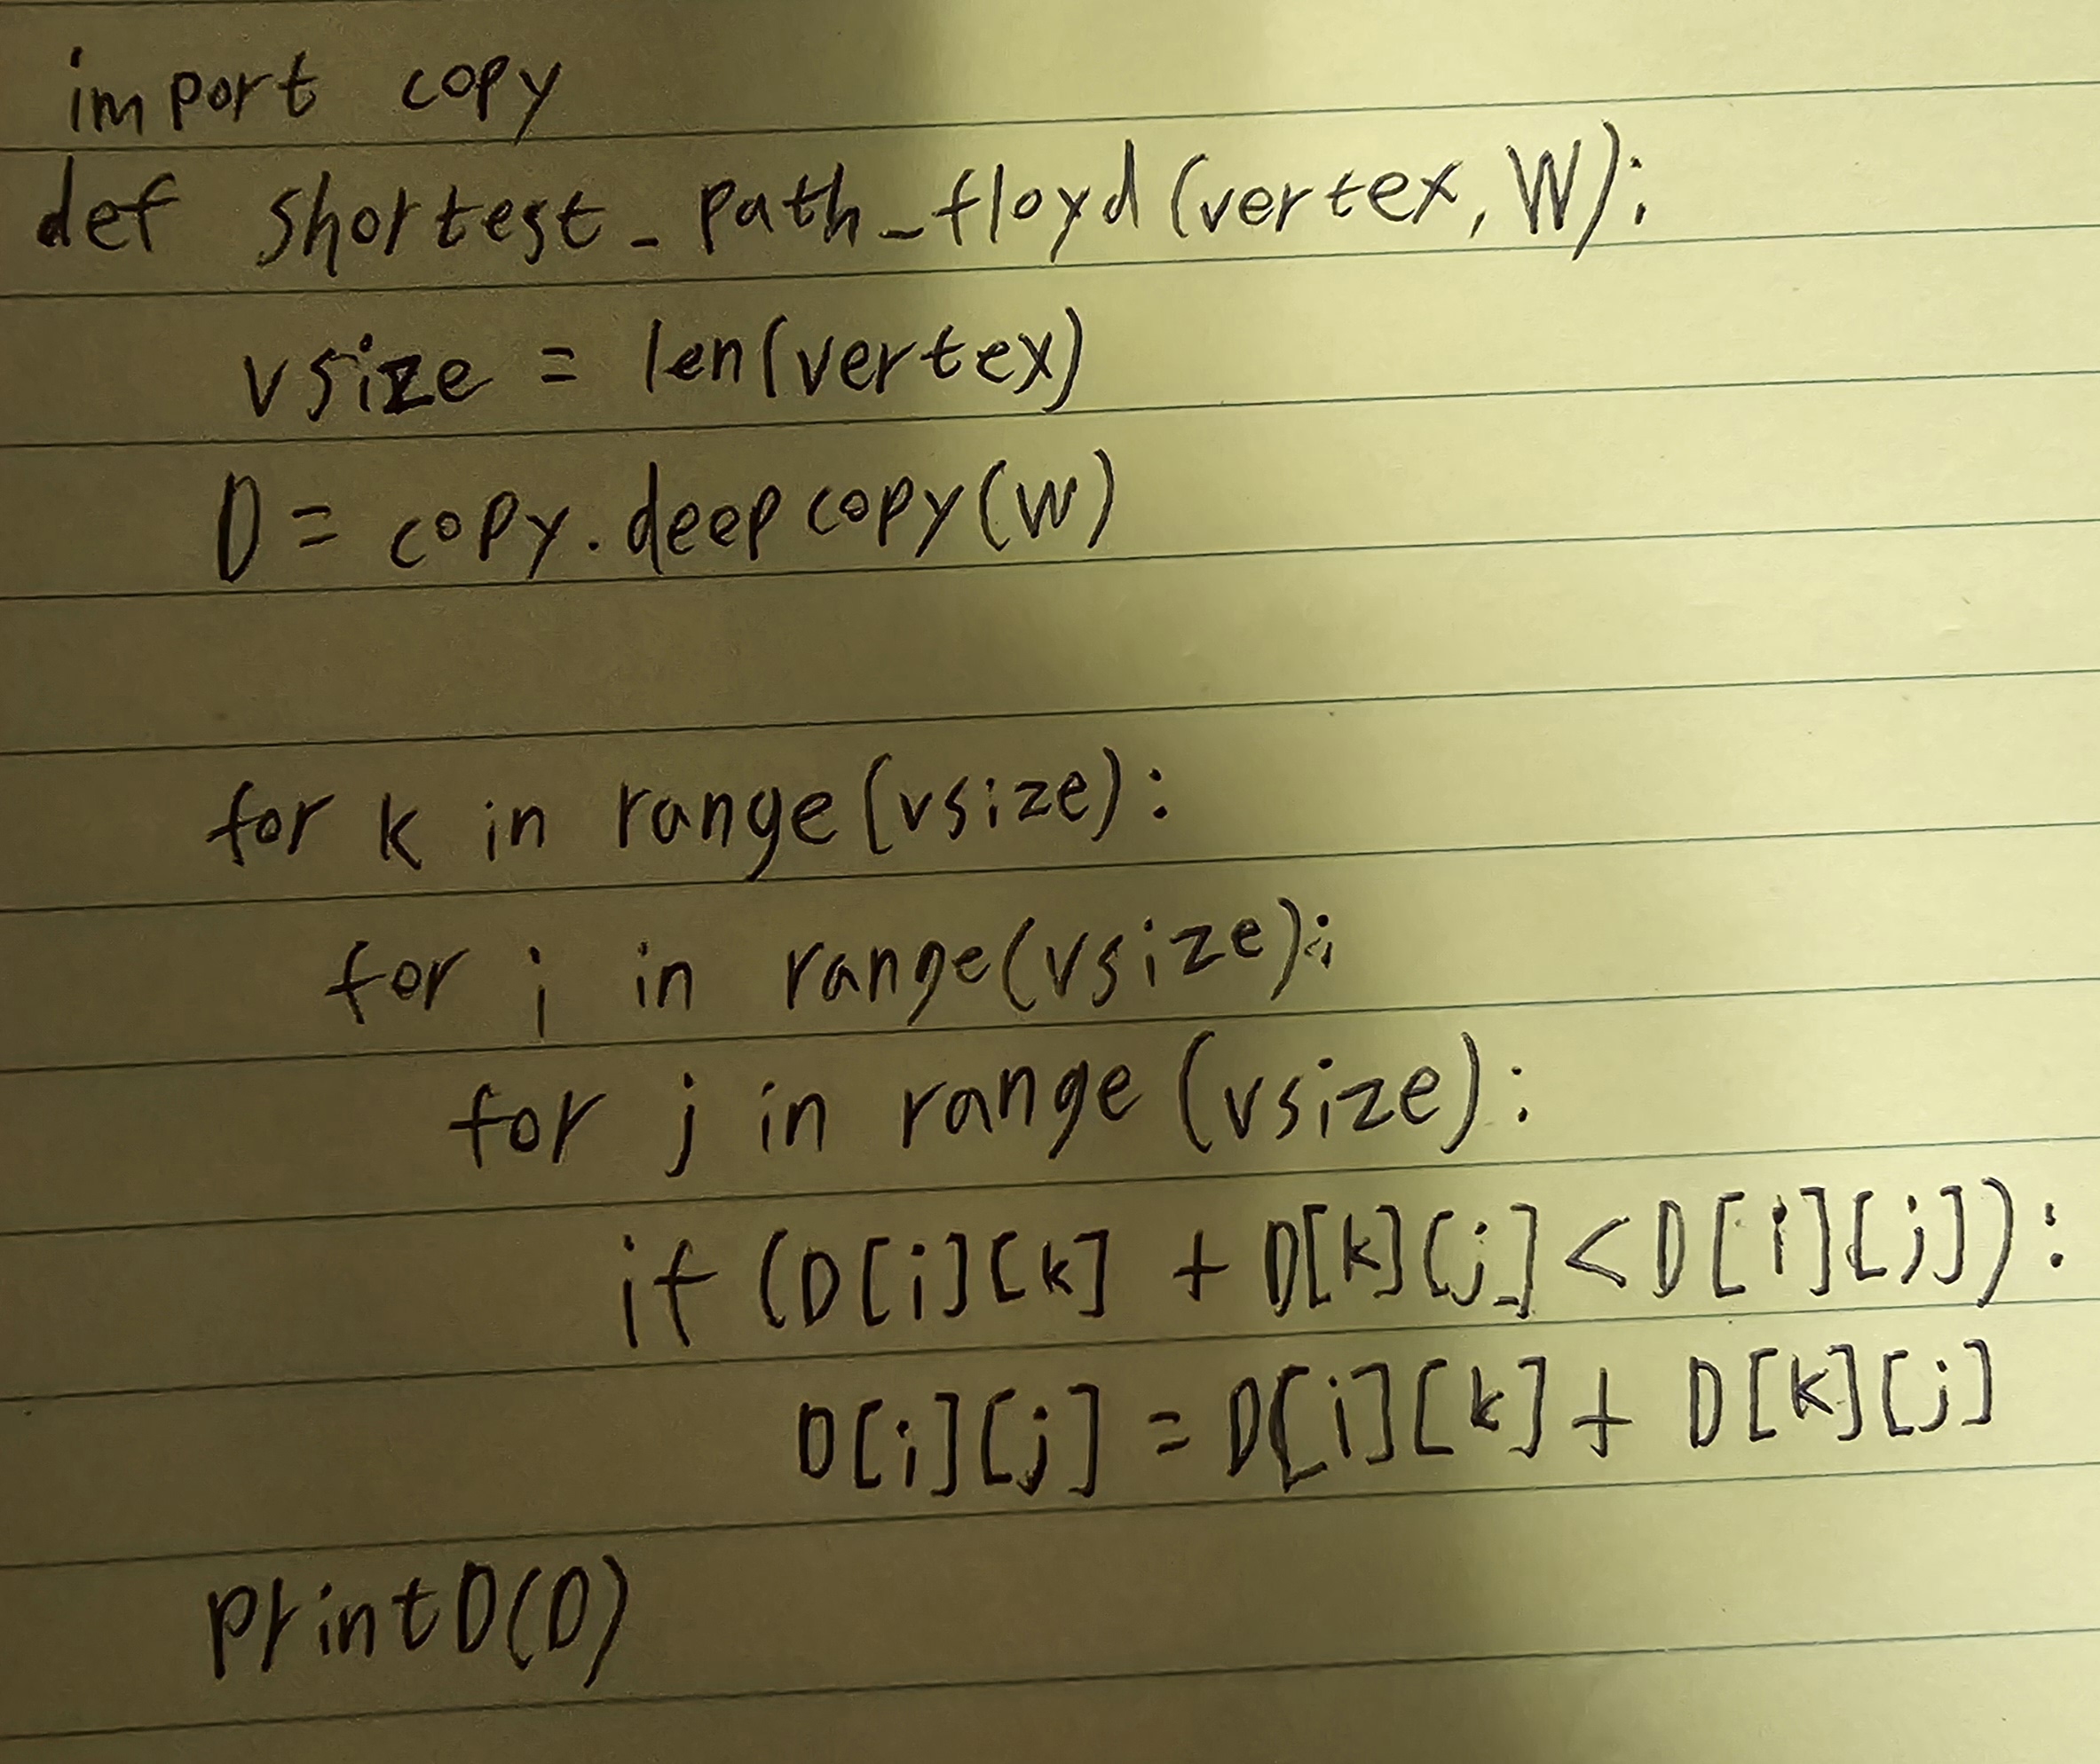 import copy
def shortest_path_floyd(vertex, W):
    vsize = len(vertex)
    D = copy.deepcopy(W)
    for k in range(vsize):
        for i in range(vsize):
            for j in range(vsize):
                if (D[i][k] + D[k][j] < D[i][j]):
                    D[i][j] = D[i][k] + D[k][j]
    printD(D)